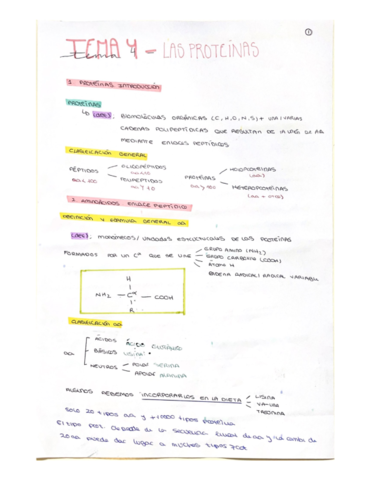 ①
TEMA 4 - LAS PROTEÍNAS
1. PROTEÍNAS INTRODUCCIÓN
PROTEÍNAS
↳ (def). BIOMOLÉCULAS ORGÁNICAS (C, H, O, N, S) + UNA/VARIAS
CADENAS POLIPEPTÍDICAS QUE RESULTAN DE LA UNIÓN DE AA
MEDIANTE ENLACES PEPTÍDICOS
CLASIFICACIÓN GENERAL
PÉPTIDOS OLIGOPÉPTIDOS
POLIPÉPTIDOS
PROTEÍNAS HOLOPROTEÍNAS
HETEROPROTEÍNAS
2. AMINOÁCIDOS. ENLACE PEPTÍDICO
DEFINICIÓN Y FÓRMULA GENERAL aa
(def). MONÓMEROS/ UNIDADES ESTRUCTURALES DE LAS PROTEÍNAS
FORMADOS POR UN Cα QUE SE UNE
GRUPO AMINO (NH2)
GRUPO CARBOXILO (COOH)
ÁTOMO H
CADENA RADICAL/ RADICAL VARIABLE
H
NH2 — Cα — COOH
R
CLASIFICACIÓN aa
aa
ÁCIDOS
BÁSICOS LISINA
NEUTROS POLAR
APOLAR
ALGUNOS DEBEMOS INCORPORARLOS EN LA DIETA
LISINA
VALINA
TREONINA
Solo 20 tipos aa y +1000 tipos proteína
El tipo prot. depende de la secuencia
20 aa puede dar lugar a muchos tipos